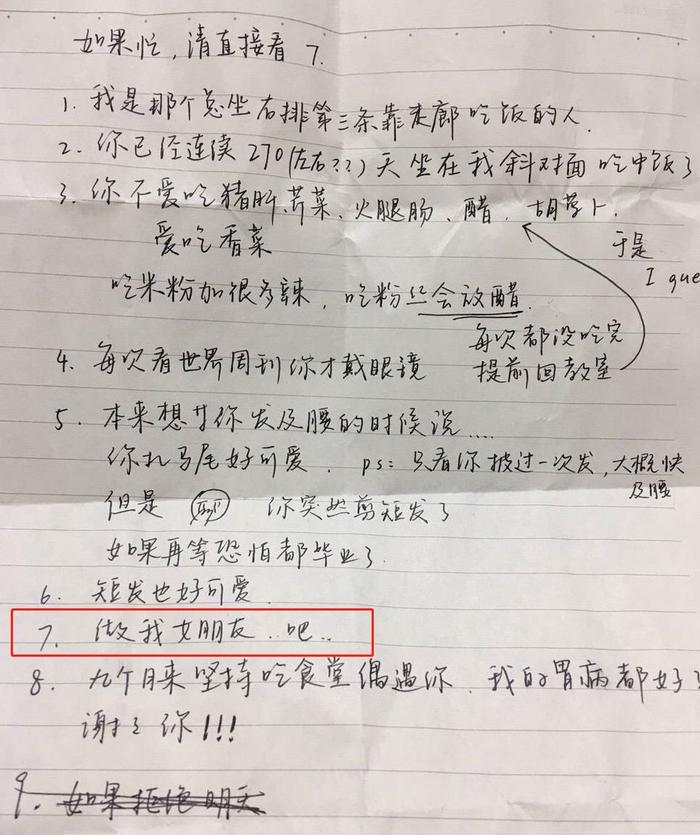 如果忙，请直接看 7.
1. 我是那个总坐右排第三条靠走廊吃饭的人.
2. 你已经连续270(左右??)天坐在我斜对面吃中饭了
3. 你不爱吃猪肝、芹菜、火腿肠、醋、胡萝卜.
于是
I gue
爱吃香菜
吃米粉加很多辣，吃粉丝会放醋.
每次都没吃完
提前回教室
4. 每次看世界周刊你才戴眼镜
5. 本来想等你发及腰的时候说....
你扎马尾好可爱. ps: 只看你披过一次发，大概快
及腰
但是 你突然剪短发了
如果再等恐怕都毕业了.
6. 短发也好可爱.
7. 做我女朋友..吧..
8. 九个月来坚持吃食堂偶遇你. 我的胃病都好了
谢了你!!!
9. 如果拒绝明天